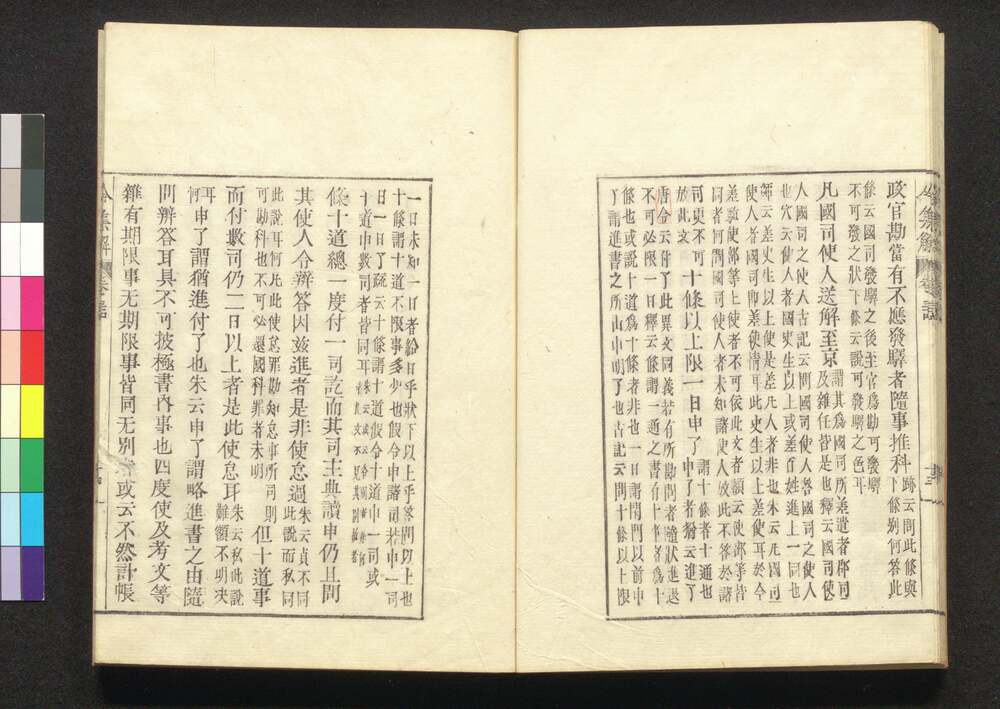 政官勘當有不應發驛者隨事推科
跡云問此條與
下條別何答此
條云國司發驛之後至官爲勘可發驛
不可發之狀下條云説可發驛之色耳
凡國司使人送解至京
謂其爲國司所差遣者郡司
及雜任皆是也釋云國司使
人國司之使人古記云問國司使人答國司之使人
也穴云使人者國史生以上或差百姓進上一同也
師云差史生以上使是差凡人者非也朱云凡國司
使人者國司即差使情耳此史生以上差使耳於今
差散使郡等上使者不可依此文者額云使郡等皆
同者何問國司使人者未知諸使人放此不答於諸
司更不可
放此文
十條以上限一日申了
謂十條者十通也
申了者猶云進了
唐令云付了此異文同義若有所勘問者隨狀進退
不可必限一日釋云條謂一通之書有十事者爲十
條也或説十道爲十條者非也一日謂閇門以前申
了謂進書之所山申明了也古記云問十條以上限
一日未知一日者給日乎狀下以上乎答問以上也
十條謂十道不限事多少也假令申諸司若申一司
日一日了疏云十條謂十道假令十道申一司或
十道申數司者皆同耳
條十道總一度付一司訖而其司主典讀申仍且問
其使人令辨答因茲進者是非使怠過
朱云貞不同
此説而私同
此説耳何凡此使怠罪勘知怠事所司則
可勘科也不可必還國科罪者未明
但十道事
而付數司仍二日以上者是此使怠耳
朱云私此説
難額不明决
耳
何
申了謂猶進付了也朱云申了謂略進書之由隨
問辨答耳具不可披極書內事也四度使及考文等
雜有期限事无期限事皆同无別
或云不然計帳